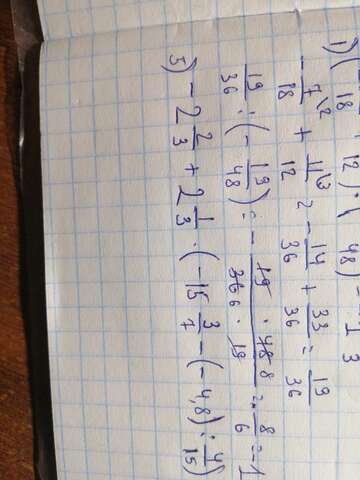 1) (-7/18 + 11/12) : (-19/48) = -1 1/3
-7/18 \2 + 11/12 \3 = -14/36 + 33/36 = 19/36
19/36 : (-19/48) = - 19 · 48 8 / 36 6 · 19 = -8/6 = -1
5) -2 2/3 + 2 1/3 · (-15 3/7 - (-4,8) : 4/15)